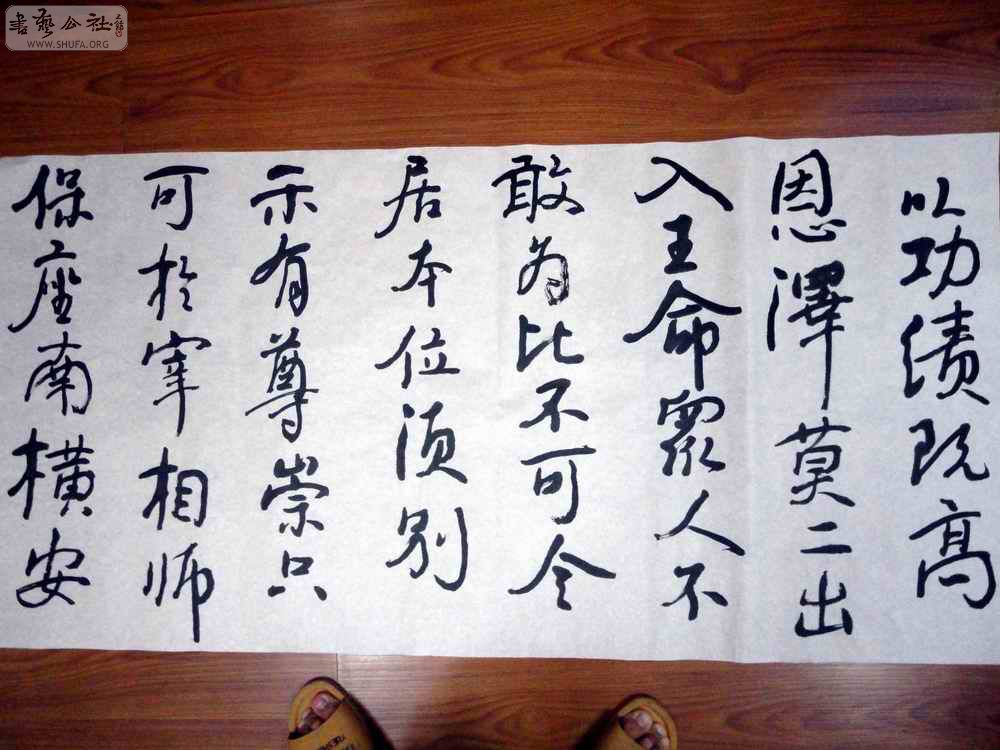 以功绩既高
恩澤莫二出
入王命眾人不
敢为比不可令
居本位须别
示有尊崇只
可於宰相师
保座南横安
書藝公社
WWW.SHUFA.ORG